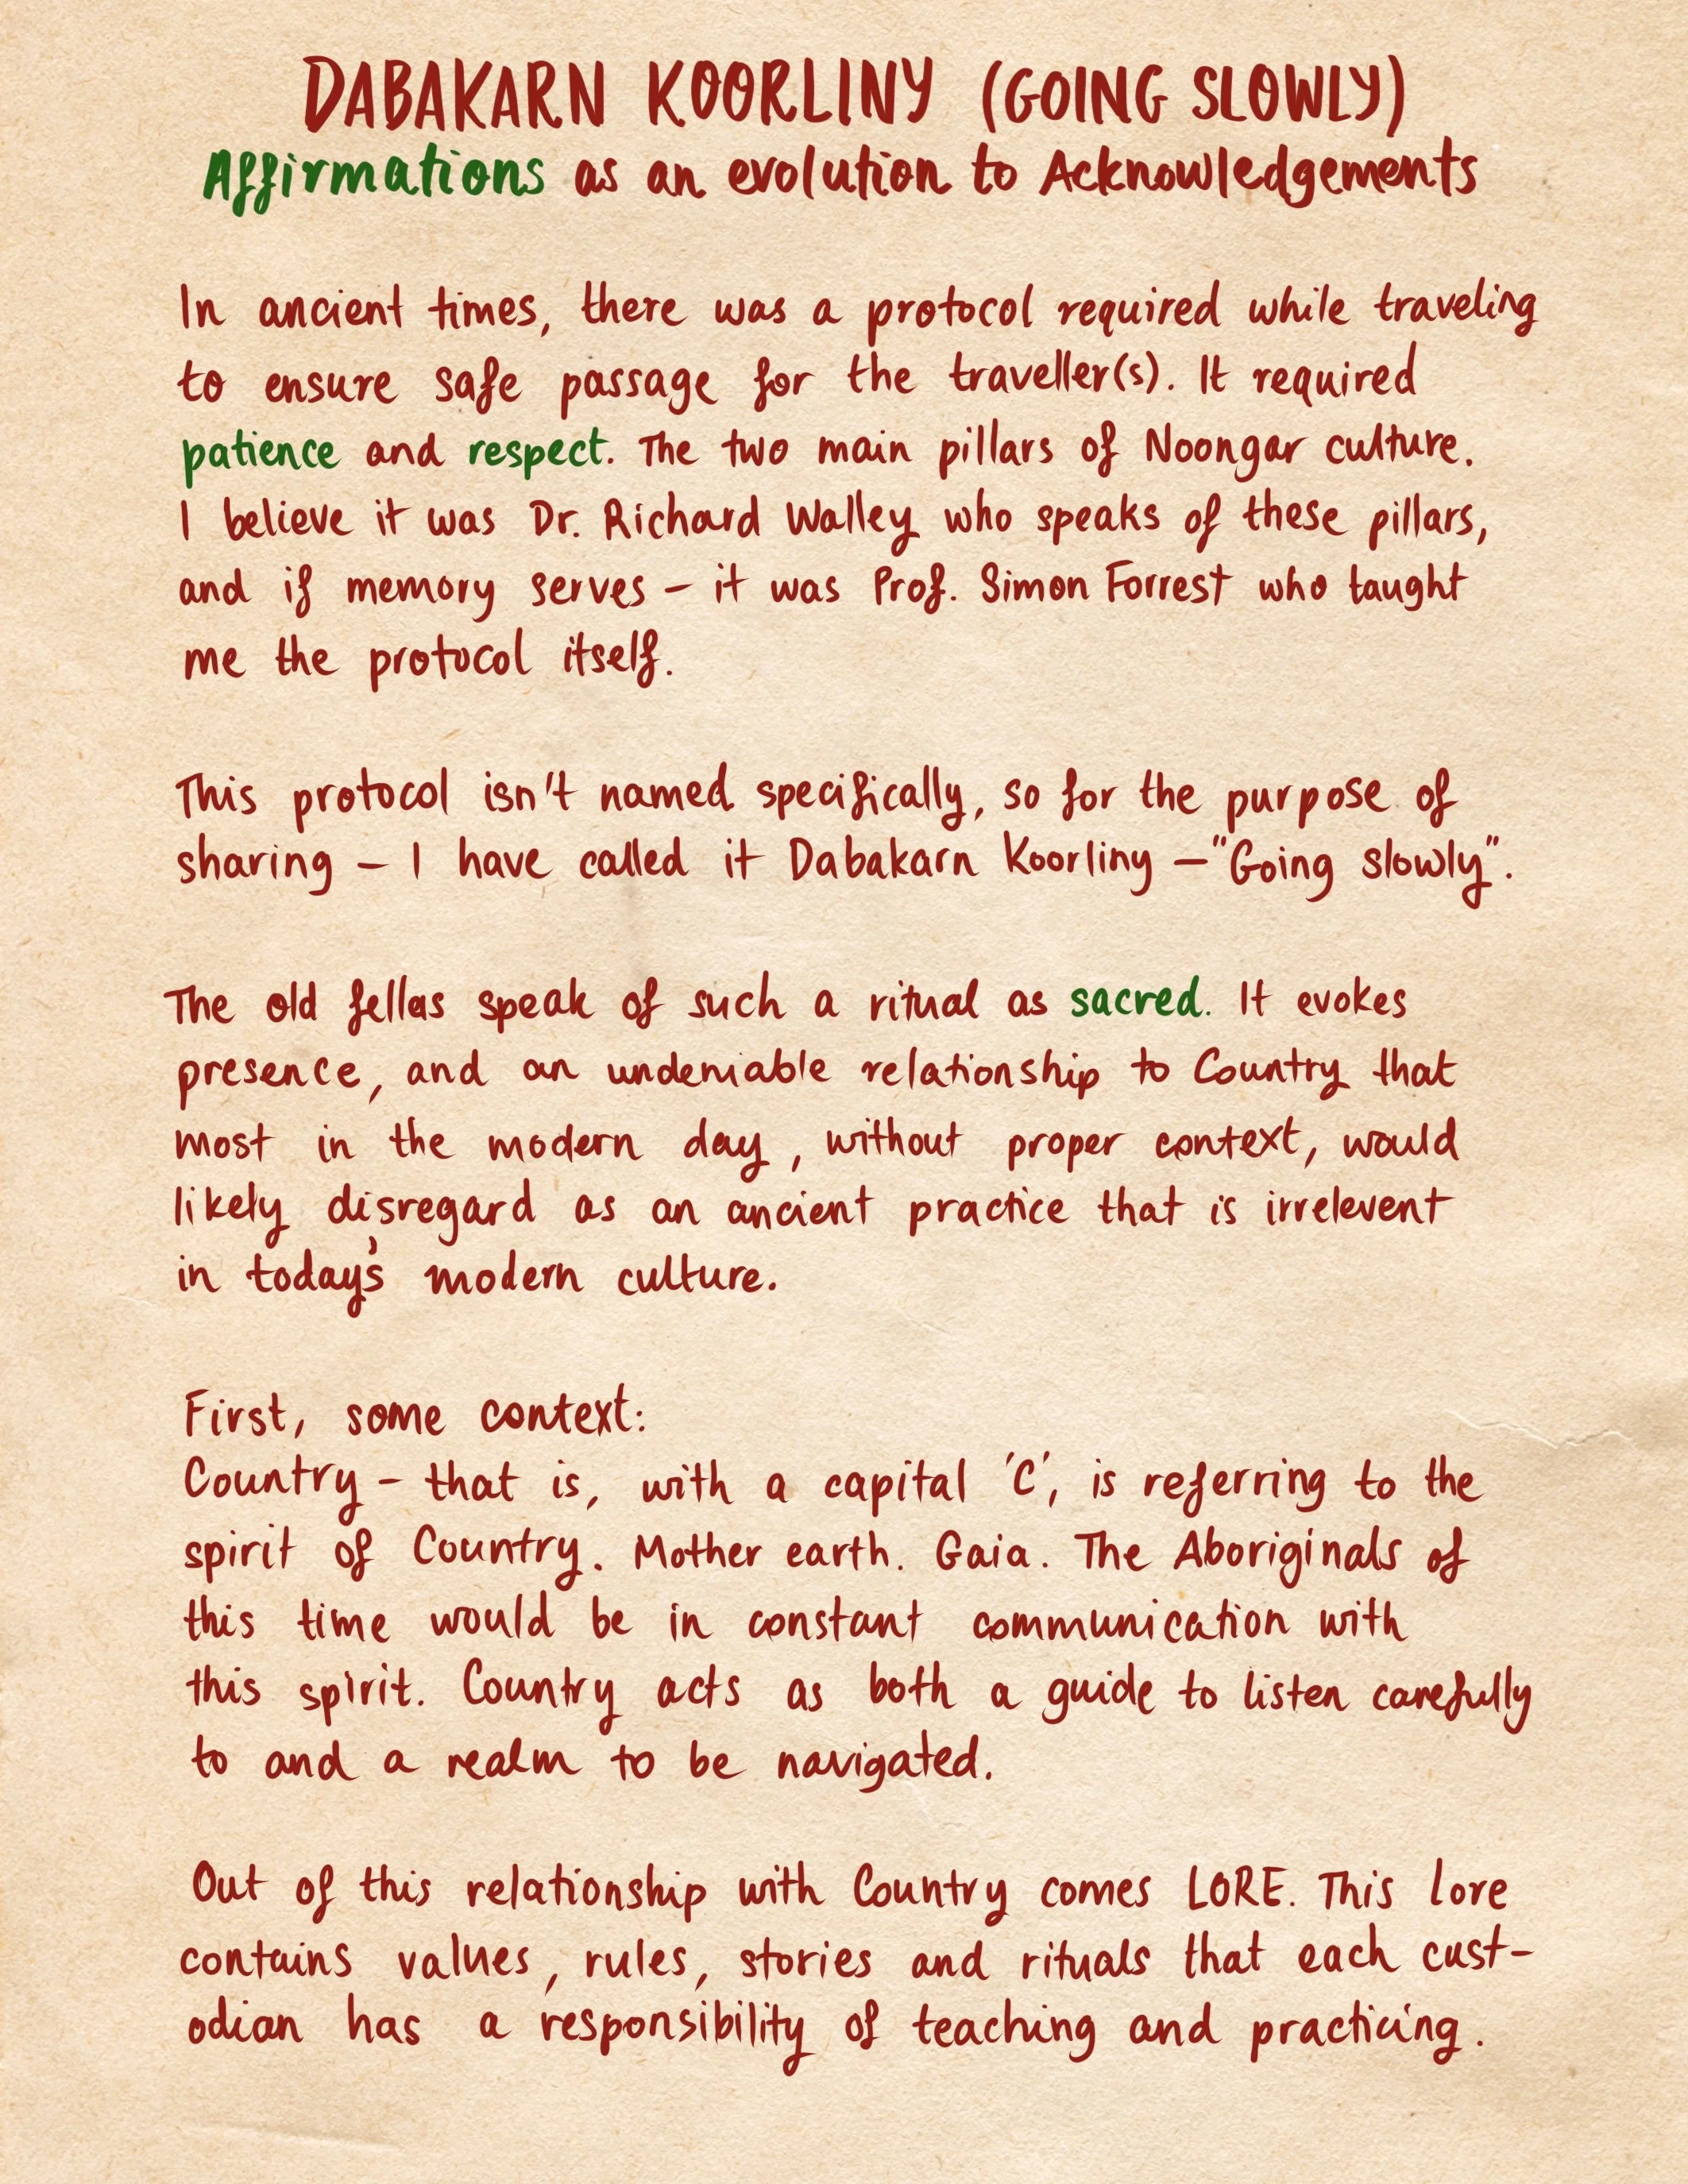 DABAKARN KOORLINY (GOING SLOWLY)
Affirmations as an evolution to Acknowledgements
In ancient times, there was a protocol required while traveling
to ensure safe passage for the traveller(s). It required
patience and respect. The two main pillars of Noongar culture.
I believe it was Dr. Richard Walley who speaks of these pillars,
and if memory serves - it was Prof. Simon Forrest who taught
me the protocol itself.
This protocol isn't named specifically, so for the purpose of
sharing - I have called it Dabakarn Koorliny - "Going slowly".
The old fellas speak of such a ritual as sacred. It evokes
presence, and an undeniable relationship to Country that
most in the modern day, without proper context, would
likely disregard as an ancient practice that is irrelevent
in today's modern culture.
First, some context:
Country - that is, with a capital 'C', is referring to the
spirit of Country. Mother earth. Gaia. The Aboriginals of
this time would be in constant communication with
this spirit. Country acts as both a guide to listen carefully
to and a realm to be navigated.
Out of this relationship with Country comes LORE. This lore
contains values, rules, stories and rituals that each cust-
odian has a responsibility of teaching and practicing.